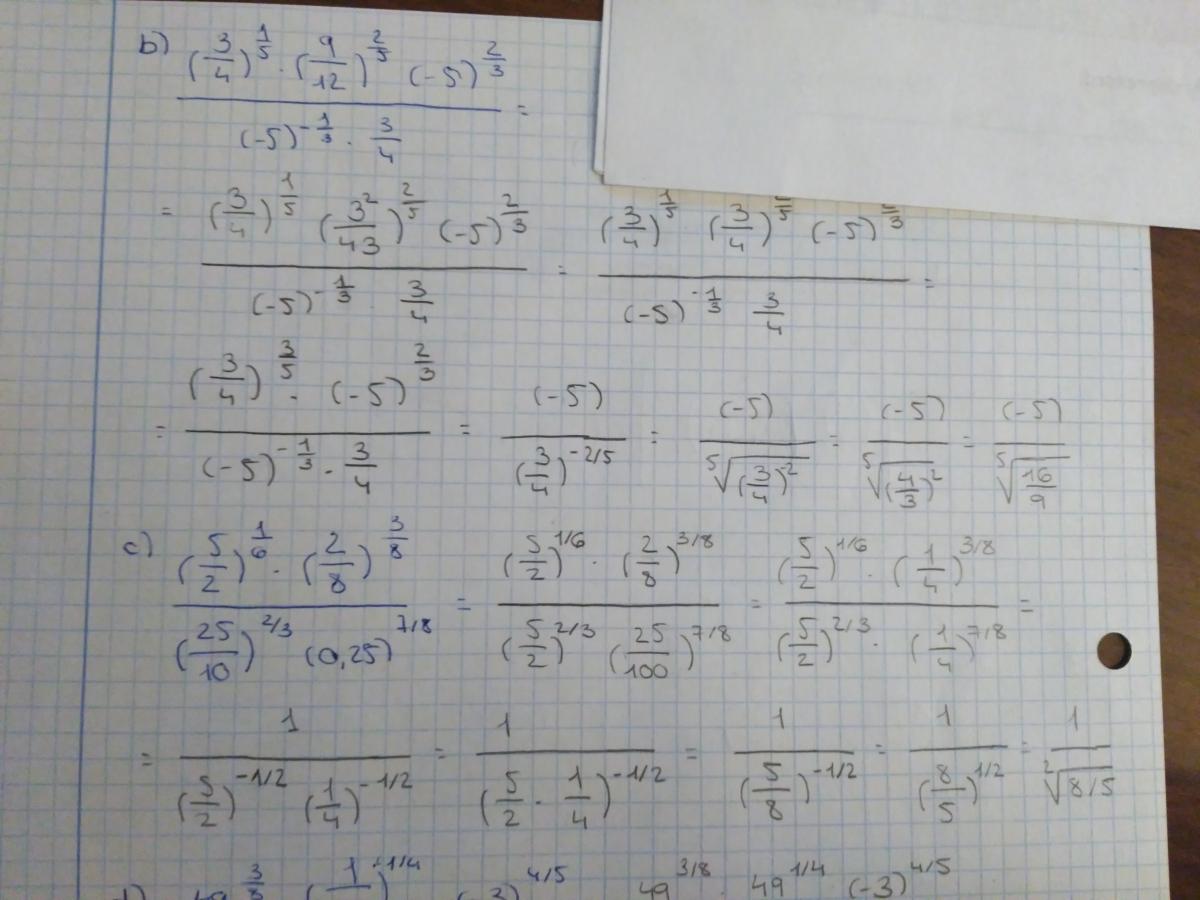 b) ((3/4)^(1/5) · (9/12)^(2/5) (-5)^(2/3)) / ((-5)^(-1/3) · 3/4) =
= ((3/4)^(1/5) (3²/43)^(2/5) (-5)^(2/3)) / ((-5)^(-1/3) · 3/4) = ((3/4)^(1/5) (3/4) (-5)) / ((-5)^(-1/3) 3/4) =
= ((3/4)^(3/5) · (-5)^(2/3)) / ((-5)^(-1/3) · 3/4) = (-5) / (3/4)^(-2/5) = (-5) / ⁵√(3/4)² = (-5) / ⁵√(4/3)² = (-5) / ⁵√(16/9)
c) ((5/2)^(1/6) · (2/8)^(3/8)) / ((25/10)^(2/3) (0,25)^(7/8)) = ((5/2)^(1/6) · (2/8)^(3/8)) / ((5/2)^(2/3) (25/100)^(7/8)) = ((5/2)^(1/6) · (1/4)^(3/8)) / ((5/2)^(2/3) · (1/4)^(7/8)) =
= 1 / ((5/2)^(-1/2) (1/4)^(-1/2)) = 1 / (5/2 · 1/4)^(-1/2) = 1 / (5/8)^(-1/2) = 1 / (8/5)^(1/2) = 1 / ²√(8/5)
49^(3/8) · 49^(1/4) (-3)^(4/5)